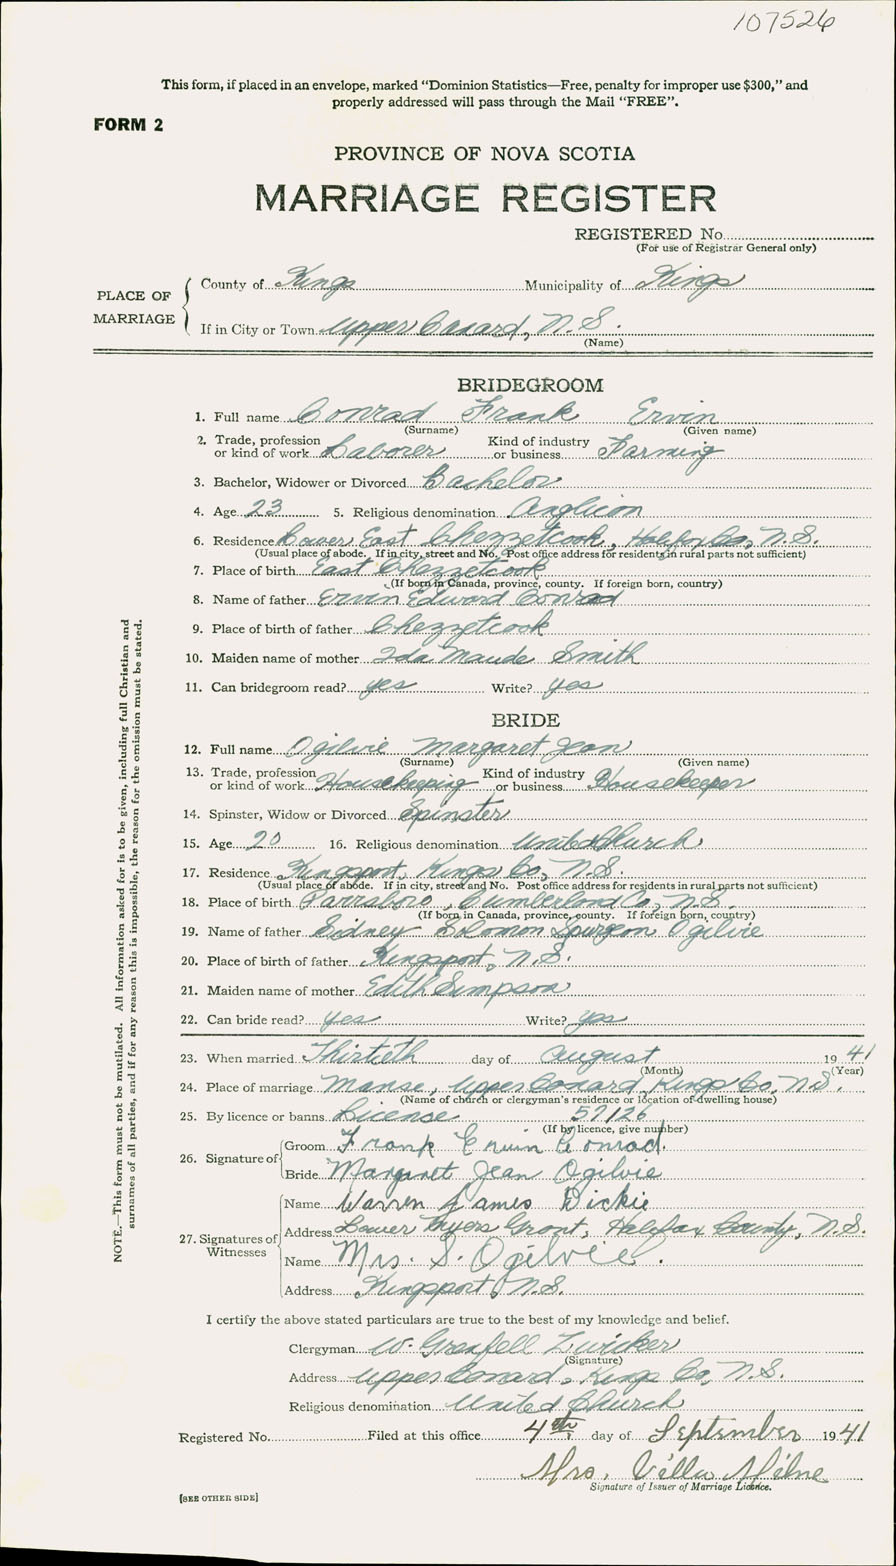 107526
This form, if placed in an envelope, marked "Dominion Statistics—Free, penalty for improper use $300," and
properly addressed will pass through the Mail "FREE".
FORM 2
PROVINCE OF NOVA SCOTIA
MARRIAGE REGISTER
REGISTERED No.
(For use of Registrar General only)
PLACE OF MARRIAGE
County of Kings Municipality of Kings
If in City or Town Upper Canard, N.S.
(Name)
BRIDEGROOM
1. Full name Conrad Frank Ervin
(Surname) (Given name)
2. Trade, profession or kind of work Laborer Kind of industry or business Farming
3. Bachelor, Widower or Divorced Bachelor
4. Age 23 5. Religious denomination Anglican
6. Residence Lower East Chezzetcook, Halifax Co, N.S.
(Usual place of abode. If in city, street and No. Post office address for residents in rural parts not sufficient)
7. Place of birth East Chezzetcook
(If born in Canada, province, county. If foreign born, country)
8. Name of father Ervin Edward Conrad
9. Place of birth of father Chezzetcook
10. Maiden name of mother Ida Maude Smith
11. Can bridegroom read? yes Write? yes
BRIDE
12. Full name Ogilvie Margaret Jean
(Surname) (Given name)
13. Trade, profession or kind of work Housekeeping Kind of industry or business Housekeeper
14. Spinster, Widow or Divorced Spinster
15. Age 20 16. Religious denomination United Church
17. Residence Kingsport, Kings Co, N.S.
(Usual place of abode. If in city, street and No. Post office address for residents in rural parts not sufficient)
18. Place of birth Parrsboro, Cumberland Co, N.S.
(If born in Canada, province, county. If foreign born, country)
19. Name of father Sidney Solomon Spurgeon Ogilvie
20. Place of birth of father Kingsport, N.S.
21. Maiden name of mother Edith Simpson
22. Can bride read? yes Write? yes
23. When married Thirtieth day of August 1941
(Month) (Year)
24. Place of marriage Manse, Upper Canard, Kings Co, N.S.
(Name of church or clergyman's residence or location of dwelling house)
25. By licence or banns License 57126
(If by licence, give number)
26. Signature of
Groom Frank Ervin Conrad.
Bride Margaret Jean Ogilvie
27. Signatures of Witnesses
Name Warren James Dickie
Address Lower Myers Grant, Halifax County, N.S.
Name Mrs. S. Ogilvie.
Address Kingsport, N.S.
I certify the above stated particulars are true to the best of my knowledge and belief.
Clergyman W. Grenfell Zwicker
(Signature)
Address Upper Canard, Kings Co, N.S.
Religious denomination United Church
Registered No. Filed at this office 4th day of September 1941
Mrs. Villa Milne
Signature of Issuer of Marriage Licence.
[SEE OTHER SIDE]
NOTE.—This form must not be mutilated. All information asked for is to be given, including full Christian and
surnames of all parties, and if for any reason this is impossible, the reason for the omission must be stated.